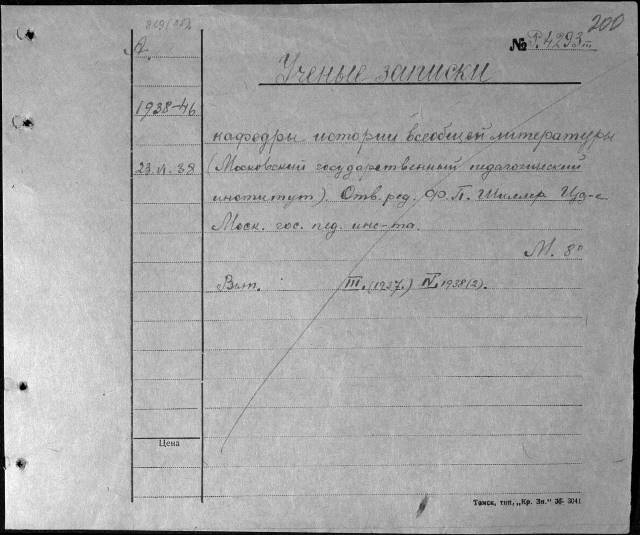 819/112
200
А.
№ Р.4293 III
Ученые записки
1938-46
кафедры истории всеобщей литературы
23.VI.38
(Московский государственный педагогический
институт) Отв. ред. Ф. П. Шиллер Изд-е
Моск. гос. пед. инс-та.
М. 8°
Вып. III. (1937.) IV. 1938(2).
Цена
Томск, тип. „Кр. Зн." 36- 3041